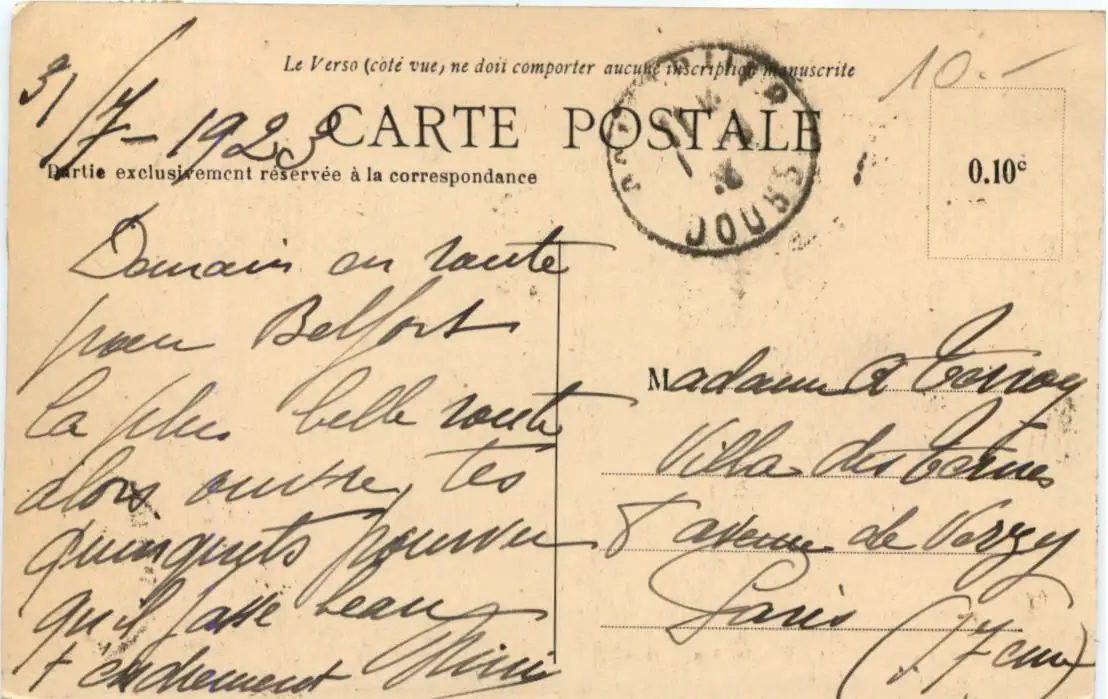 31/7-1923
10.-
Le Verso (côté vue) ne doit comporter aucune inscription manuscrite
CARTE POSTALE
Partie exclusivement réservée à la correspondance
0.10c
DOUBS
Demain en route
pour Belfort
la plus belle route
alors ouvre, tes
quinquets pourvu
qu'il fasse beau
tendrement Mimi
Madame A Terroy
Villa des Ternes
8 avenue de Verzy
Paris
(17eme)